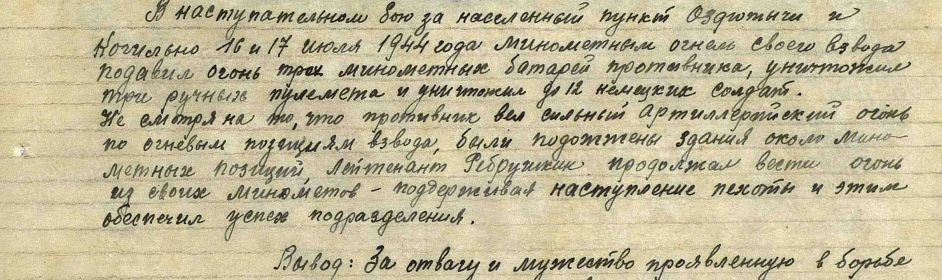 В наступательном бою за населенный пункт Оздютычи и
Когильно 16 и 17 июля 1944 года минометным огнем своего взвода
подавил огонь трех минометных батарей противника, уничтожил
три ручных пулемета и уничтожил до 12 немецких солдат.
Не смотря на то, что противник вел сильный артиллерийский огонь
по огневым позициям взвода, были подожжены здания около мино-
метных позиций, лейтенант Ребрушкин продолжал вести огонь
из своих минометов - поддерживая наступление пехоты и этим
обеспечил успех подразделения.
Вывод: За отвагу и мужество проявленную в борьбе